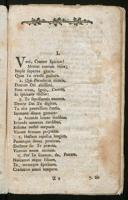 I.
Veni, Creator Spiritus!
Mentes tuorum visita;
Imple superna gratia,
Quæ Tu creasti pectora.
2. Qui Paraclitus diceris,
Donum Dei altissimi,
Fons vivus, Ignis, Caritas,
Et spiritalis unctio:
3. Tu septiformis munere,
Dextræ Dei Tu digitus,
Tu rite promissum Patris,
Sermone ditans guttura:
4. Accende lumen sensibus,
Infunde amorem cordibus,
Infirma nostri corporis
Virtute firmans perpeti:
5. Hostem repellas longius,
Pacemque dones protinus;
Ductore sic Te prævio
Vitemus omne noxium.
6. Per Te sciamus, da, Patrem,
Noscamus atque Filium,
Te, utriusque Spiritum,
Credamus omni tempore.